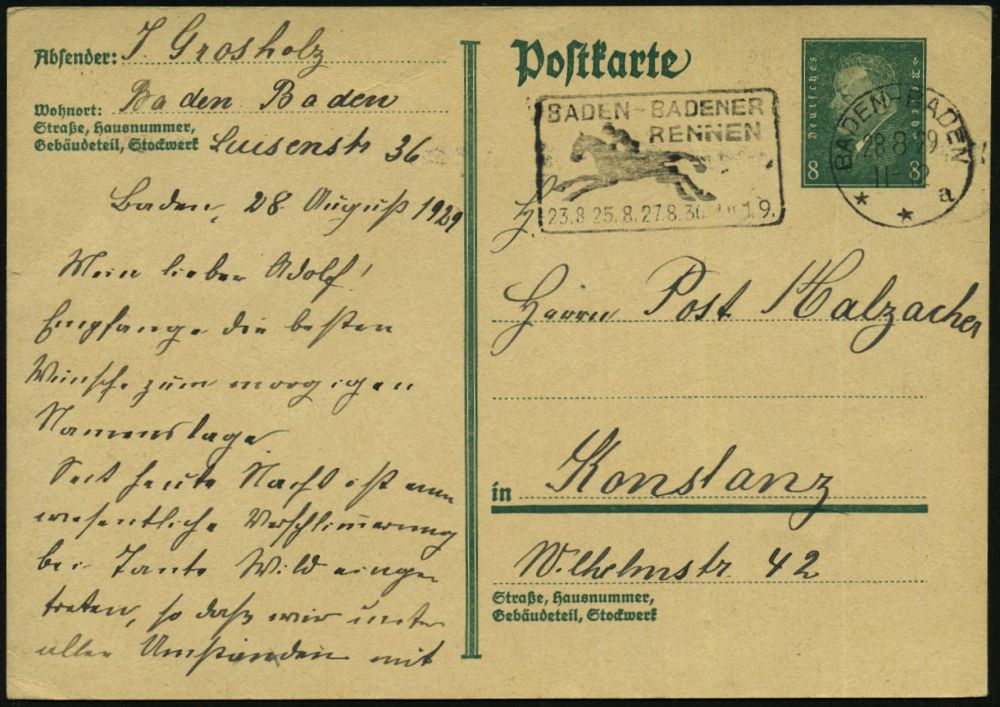 Absender: J Grosholz
Wohnort: Baden Baden
Straße, Hausnummer,
Gebäudeteil, Stockwerk Luisenstr 36
Baden, 28 August 1929
Mein lieber Adolf!
Empfange die besten
Wünsche zum morgigen
Namenstage
Seit heute Nacht ist eine
wesentliche Verschlimmerung
bei Tante Wild einge
treten, so dass wir unter
allen Umständen mit
Postkarte
Deutsches Reich
8 8
BADEN-BADENER
RENNEN
23.8 25.8. 27.8. 30. 1.9.
BADEN-BADEN
28 8 29
11-12
* * a
H
Herrn Post Malzacher
in Konstanz
Wilhelmstr 42
Straße, Hausnummer,
Gebäudeteil, Stockwerk